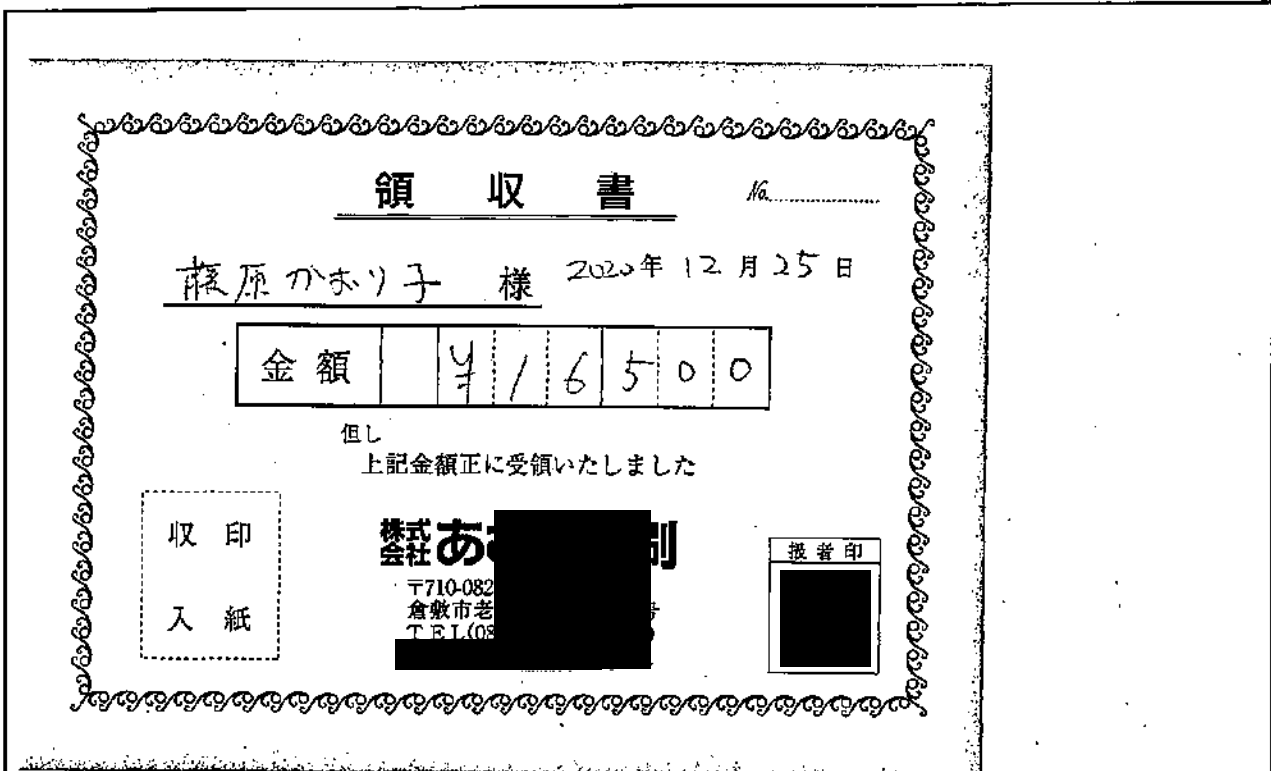 領収書 No.
藤原かおり子 様 2020年12月25日
金額 ¥16500
但し
上記金額正に受領いたしました
収印
入紙
株式会社あ
〒710-082
倉敷市老 号
TEL(08
扱者印